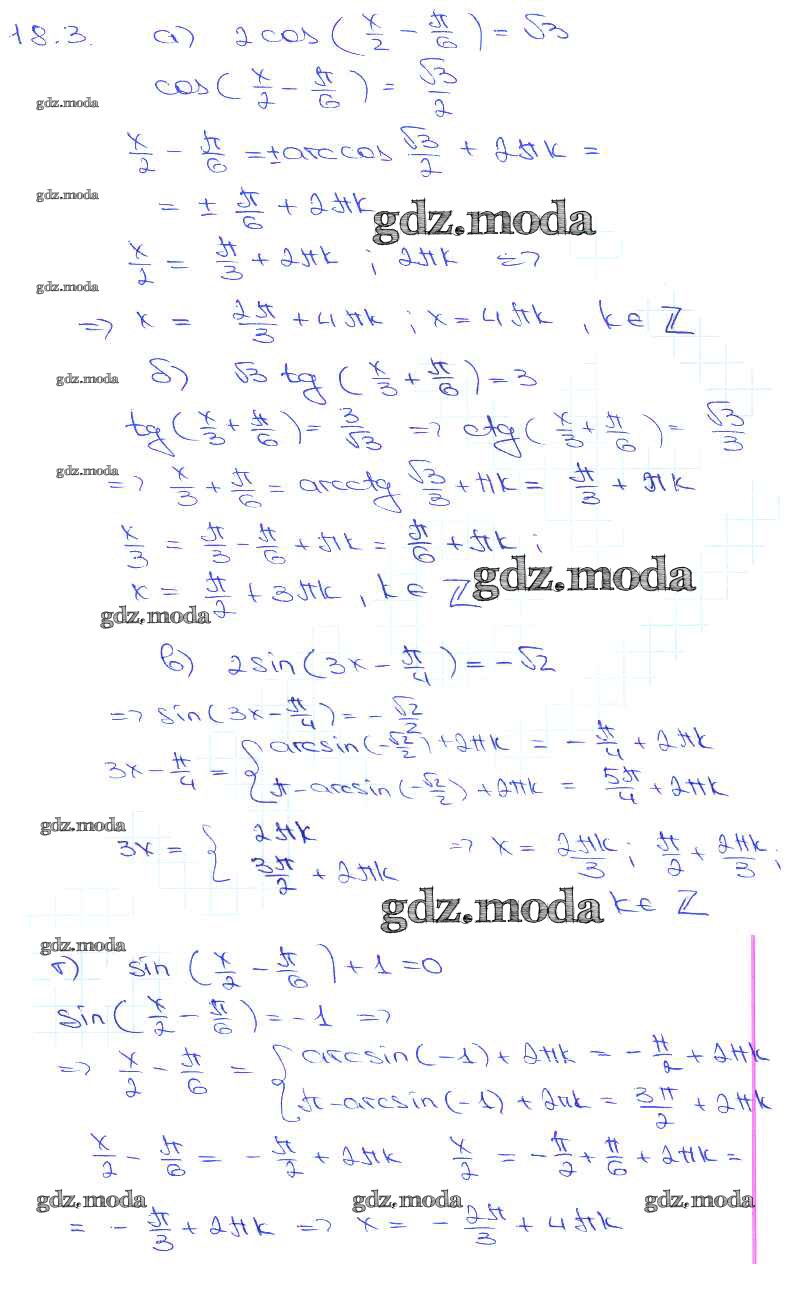 18.3. а) 2cos(x/2 - π/6) = √3
cos(x/2 - π/6) = √3/2
gdz.moda
x/2 - π/6 = ±arccos √3/2 + 2πk =
gdz.moda
= ± π/6 + 2πk
gdz.moda
x/2 = π/3 + 2πk ; 2πk =>
gdz.moda
=> x = 2π/3 + 4πk ; x = 4πk , k ∈ ℤ
gdz.moda
б) √3 tg(x/3 + π/6) = 3
tg(x/3 + π/6) = 3/√3 => ctg(x/3 + π/6) = √3/3
gdz.moda
=> x/3 + π/6 = arcctg √3/3 + πk = π/3 + πk
x/3 = π/3 - π/6 + πk = π/6 + πk ;
gdz.moda
x = π/2 + 3πk , k ∈ ℤ
gdz.moda
в) 2sin(3x - π/4) = -√2
=> sin(3x - π/4) = -√2/2
3x - π/4 = { arcsin(-√2/2) + 2πk = -π/4 + 2πk
π - arcsin(-√2/2) + 2πk = 5π/4 + 2πk
gdz.moda
3x = { 2πk => x = 2πk/3 ; π/2 + 2πk/3 ;
3π/2 + 2πk
gdz.moda
k ∈ ℤ
gdz.moda
г) sin(x/2 - π/6) + 1 = 0
sin(x/2 - π/6) = -1 =>
=> x/2 - π/6 = { arcsin(-1) + 2πk = -π/2 + 2πk
π - arcsin(-1) + 2πk = 3π/2 + 2πk
x/2 - π/6 = -π/2 + 2πk x/2 = -π/2 + π/6 + 2πk =
gdz.moda gdz.moda gdz.moda
= -π/3 + 2πk => x = -2π/3 + 4πk